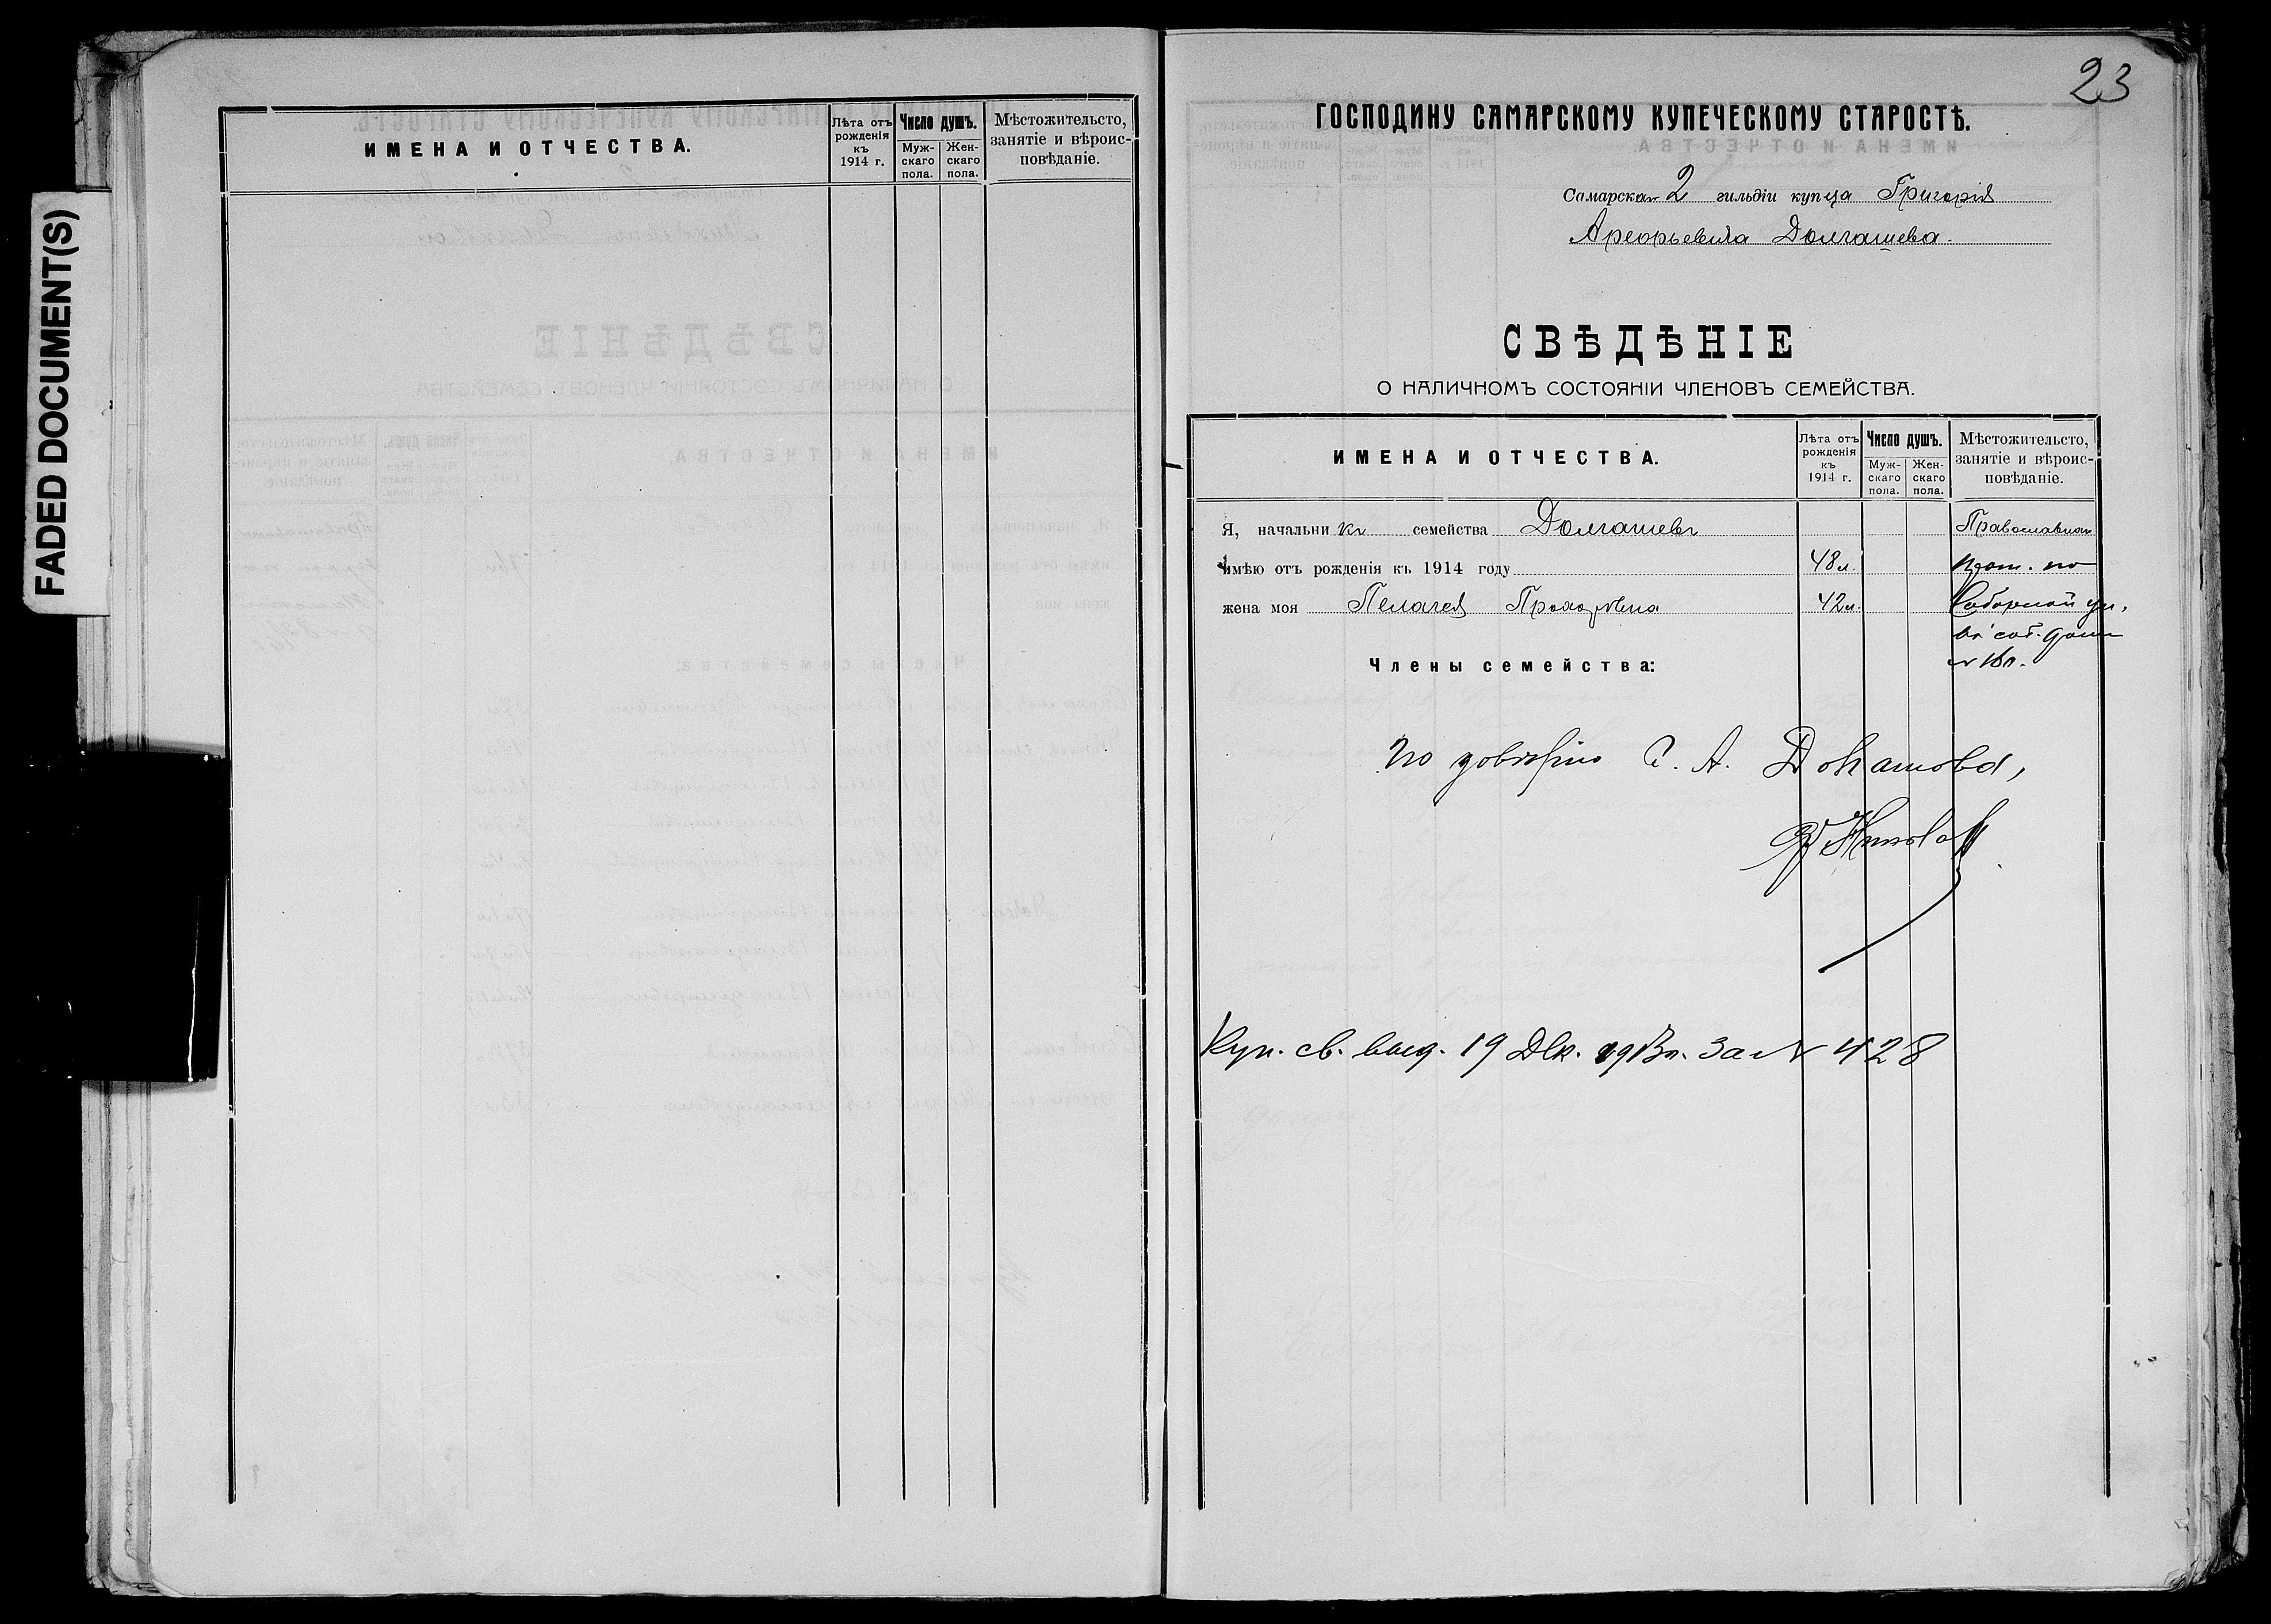 FADED DOCUMENT(S)
ИМЕНА И ОТЧЕСТВА.
Лѣта отъ рожденія къ 1914 г.
Число душъ.
Муж-скаго пола.
Жен-скаго пола.
Мѣстожительсто, занятіе и вѣроис-повѣданіе.
23
ГОСПОДИНУ САМАРСКОМУ КУПЕЧЕСКОМУ СТАРОСТѢ.
Самарска 2 гильдіи купца Григорія
Долгашева.
СВѢДѢНІЕ
О НАЛИЧНОМЪ СОСТОЯНІИ ЧЛЕНОВЪ СЕМЕЙСТВА.
ИМЕНА И ОТЧЕСТВА.
Лѣта отъ рожденія къ 1914 г.
Число душъ.
Муж-скаго пола.
Жен-скаго пола.
Мѣстожительсто, занятіе и вѣроис-повѣданіе.
Я, начальникъ семейства Долгашевъ
Православная
имѣю отъ рожденія къ 1914 году 48 л.
по
жена моя Пелагея 42 л.
Соборной ул.
въ соб. домѣ
Члены семейства:
По довѣрію Г. А.
Куп. св. выд. 19 Дек. 1913 г. За № 428